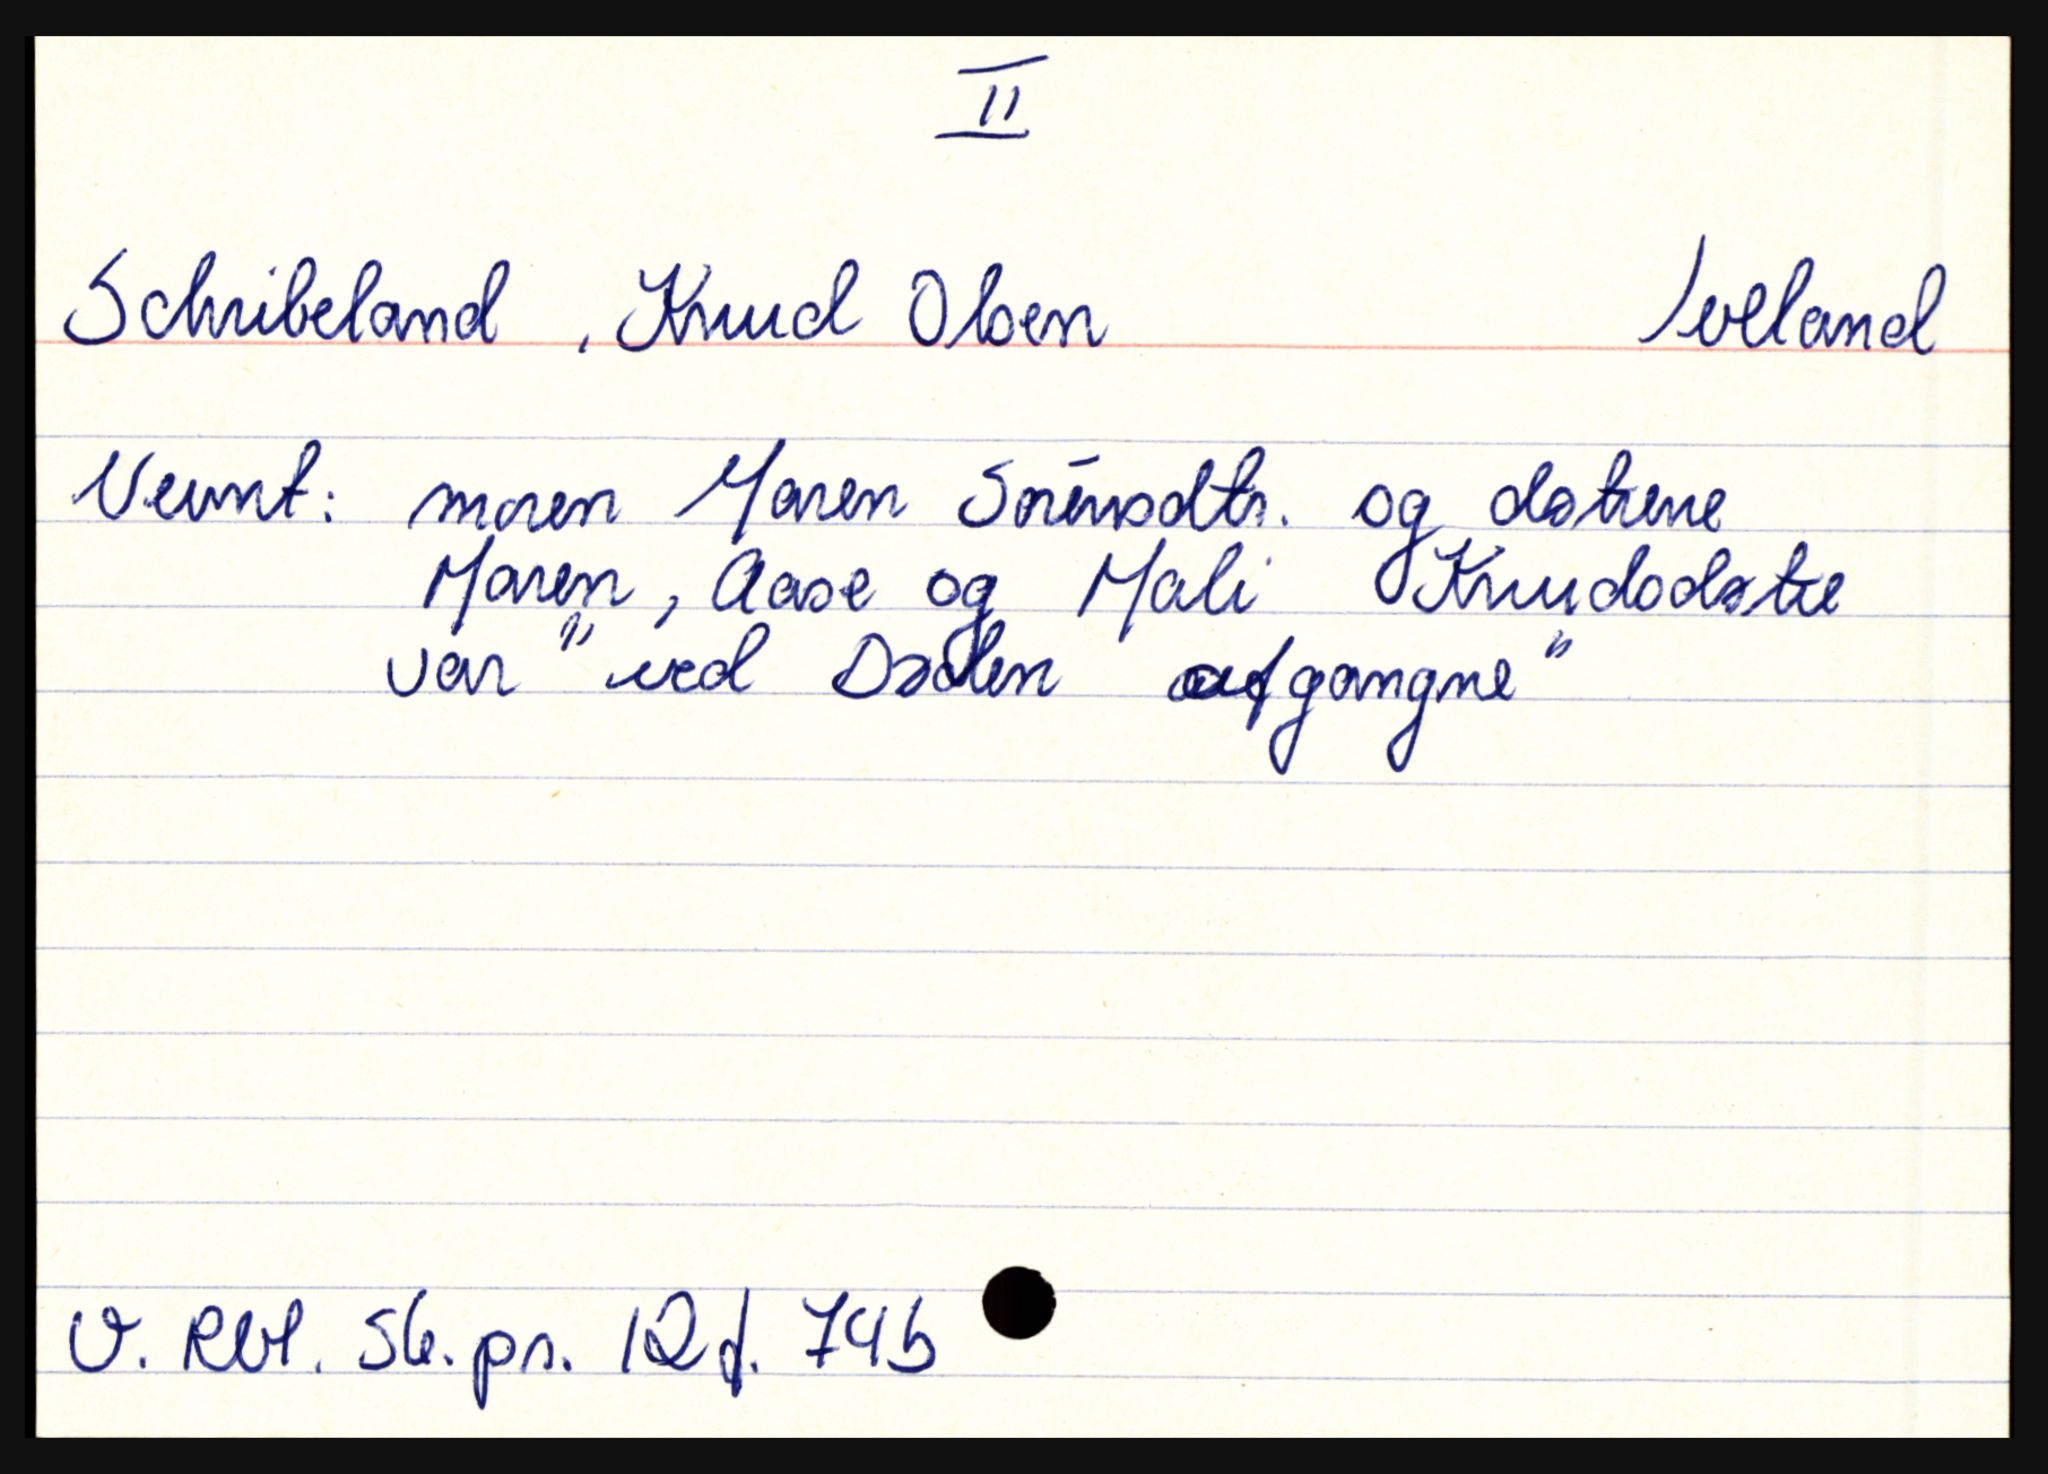 II
Schribeland, Knud Olsen Iveland
Uevnt: moren Maren Sørensdtr. og døtrene
Maren, Aase og Mali Knudsdøtre
var "ved Døden afgangne"
V. Rbl. Sk. pr. 12 f. 74b